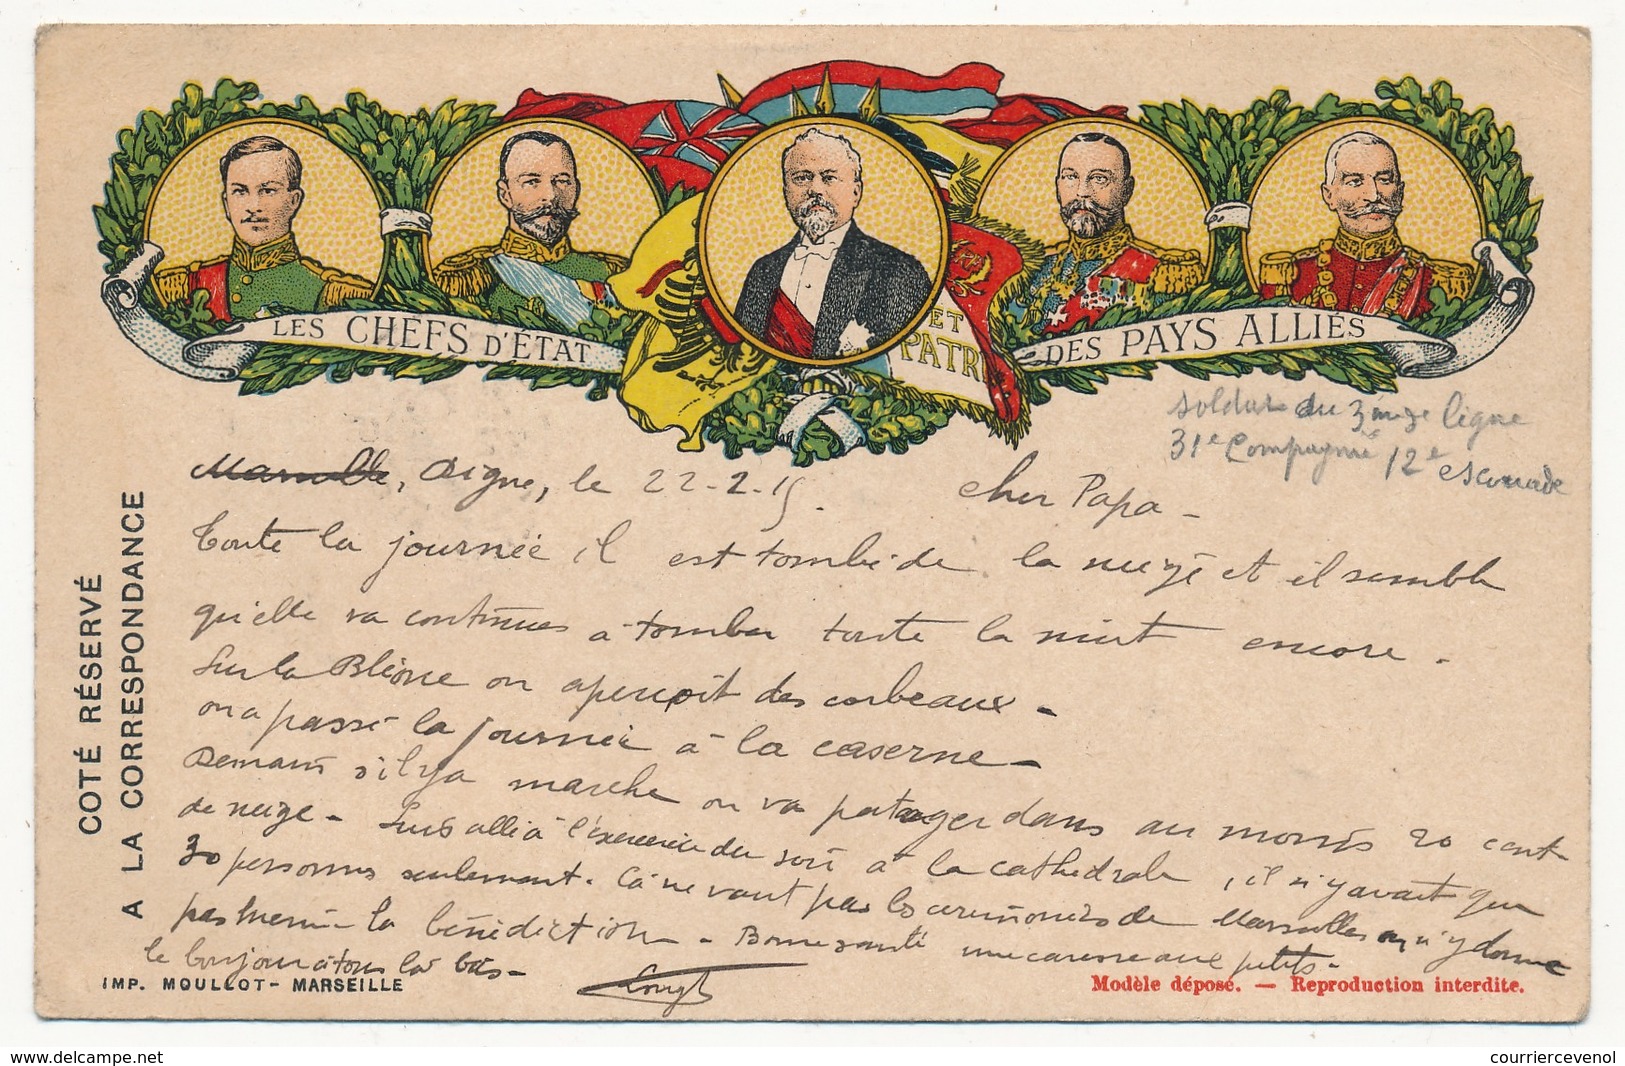 LES CHEFS D'ÉTAT
ET
PATRI
DES PAYS ALLIÉS
soldat du 3ème ligne
31e Compagnie 12e escouade
Marseille, Digne, le 22-2-15. Cher Papa -
Toute la journée il est tombé de la neige et il semble
qu'elle va continuer à tomber toute la nuit encore.
Sur la Bléone on aperçoit des corbeaux -
on a passé la journée à la caserne -
Demain s'il y a marche on va patauger dans au moins 20 cent
de neige - Suis allé à l'exercice du soir à la cathédrale, il n'y avait que
30 personnes seulement. Ça ne vaut pas les cérémonies de Marseille on n'y donne
pas même la bénédiction - Bonne santé une caresse aux petits -
le bonjour à tous là bas -
COTÉ RÉSERVÉ
A LA CORRESPONDANCE
IMP. MOULLOT - MARSEILLE
Modèle déposé. — Reproduction interdite.
courriercevenol